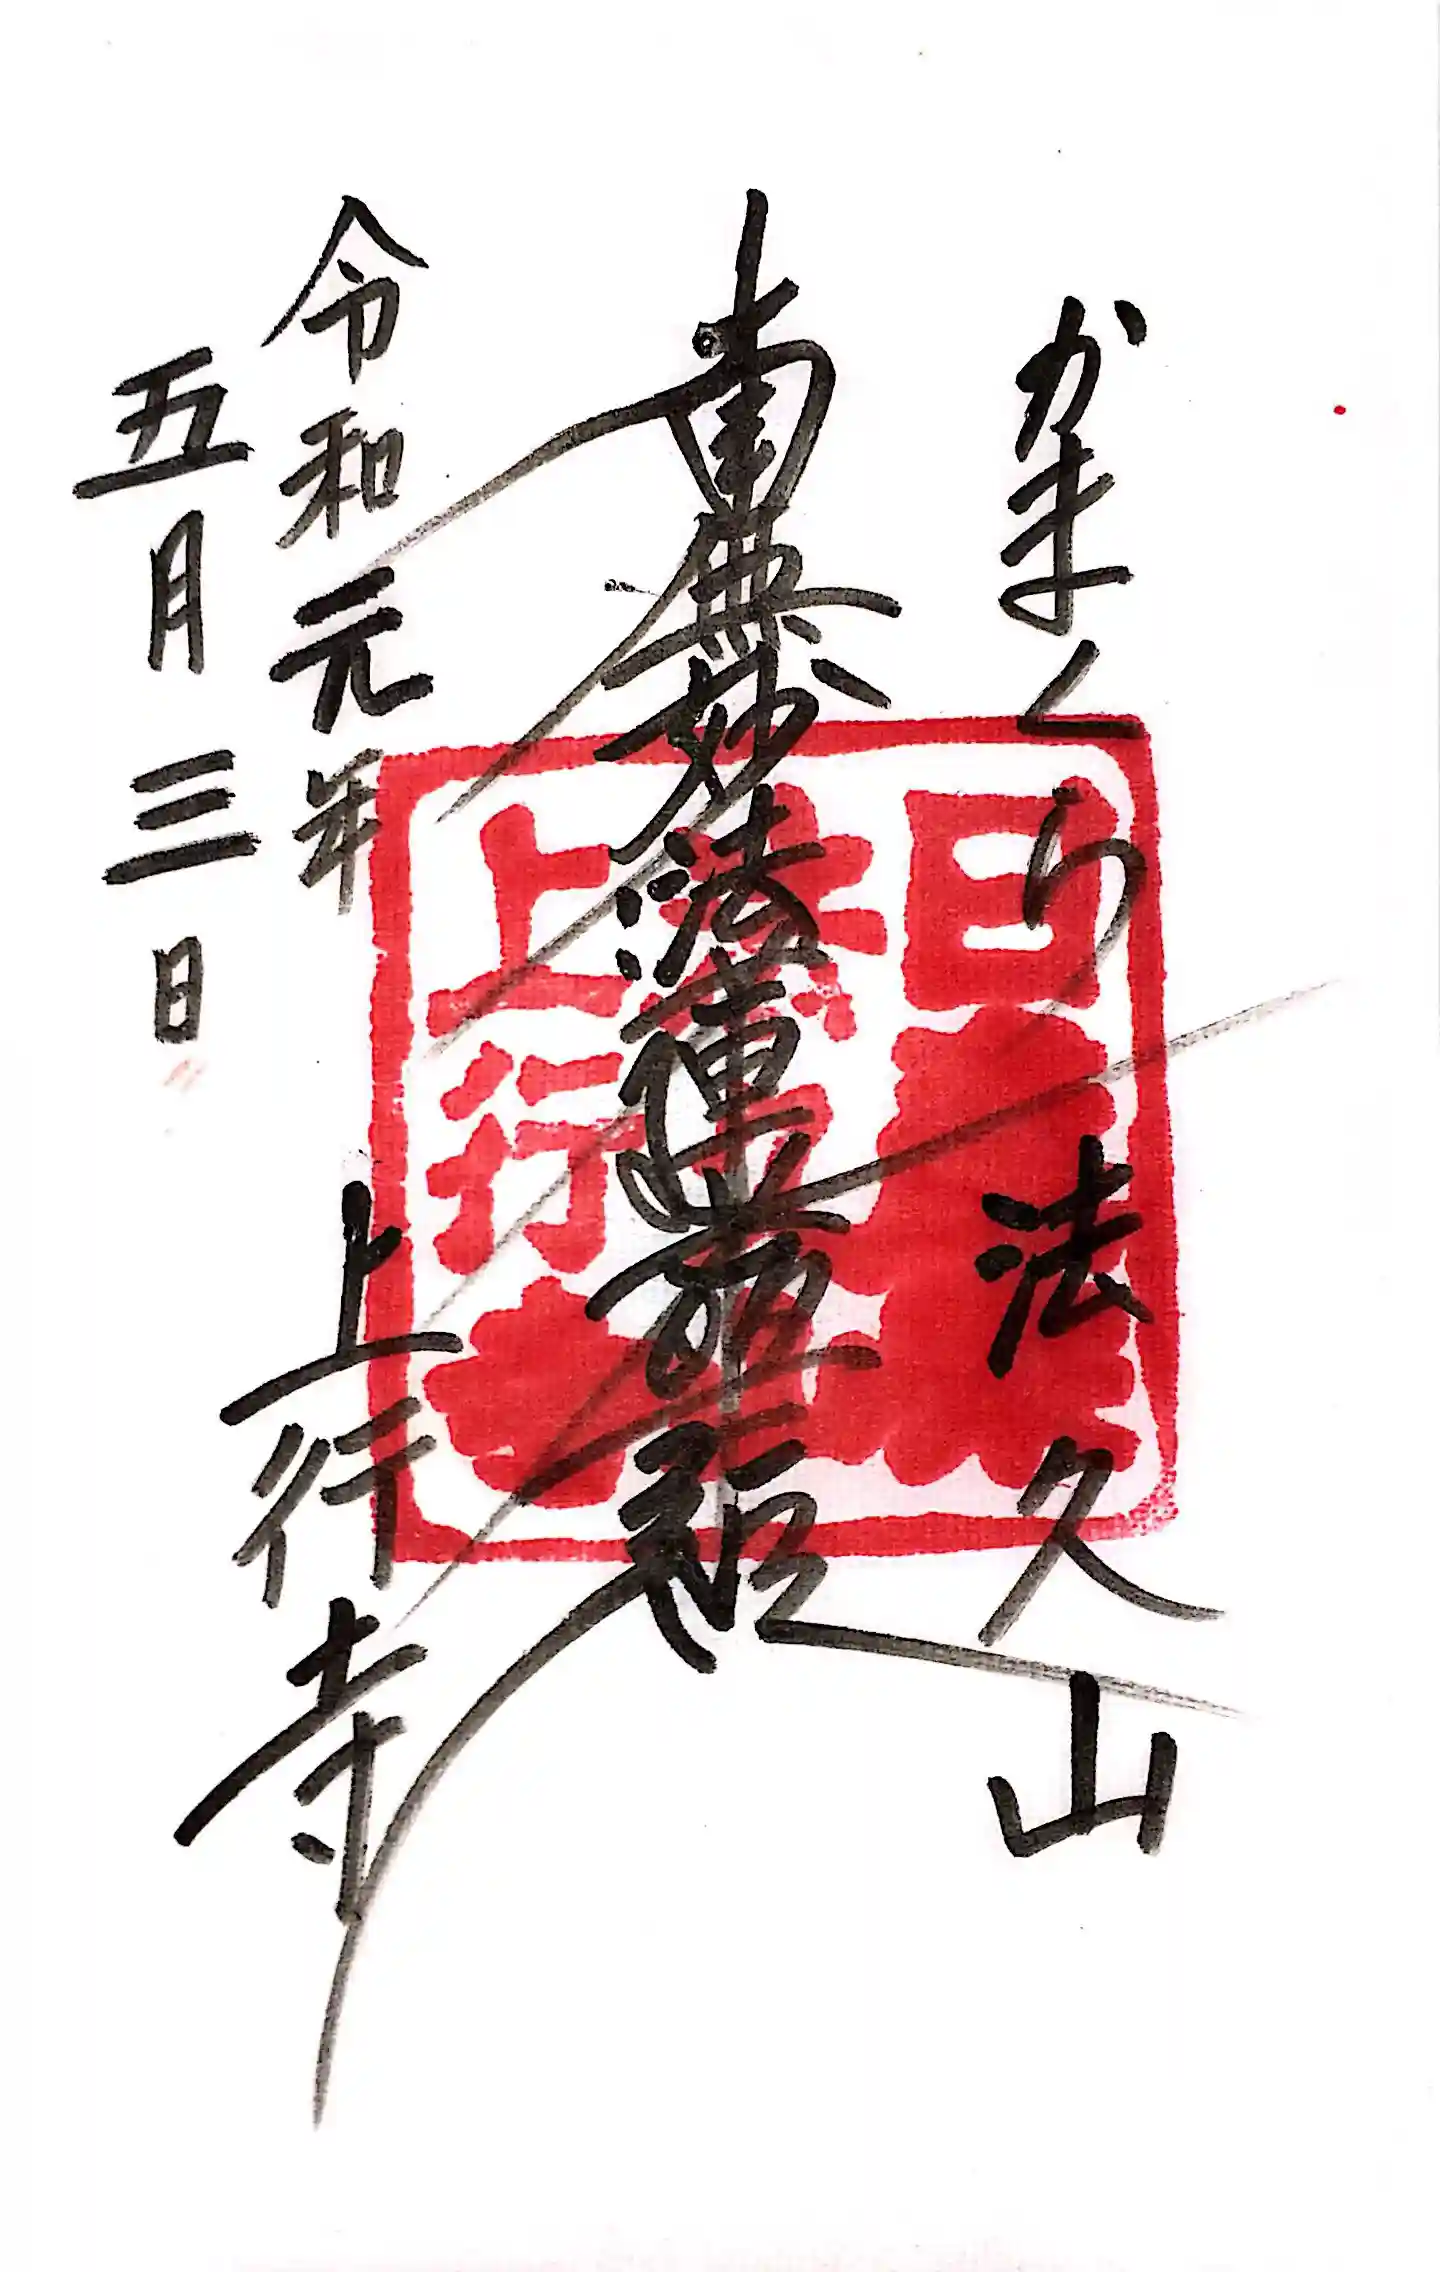 かまくら 法久山
南無妙法蓮華経
上行寺
令和元年
五月三日
日
法
上行寺